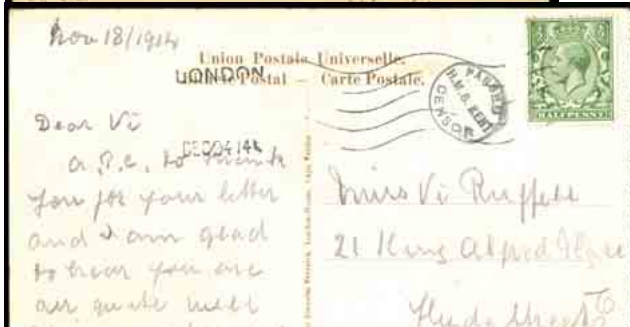 Nov 18/1914
Union Postale Universelle.
Postal — Carte Postale.
LONDON
DEC 04 14
PASSED
H.M.S. KENT
CENSOR
HALFPENNY
Dear Vi
a P.C. to thank
you for your letter
and I am glad
to hear you are
all quite well
Miss Vi Ruffell
21 King Alfred Place
Hyde Street